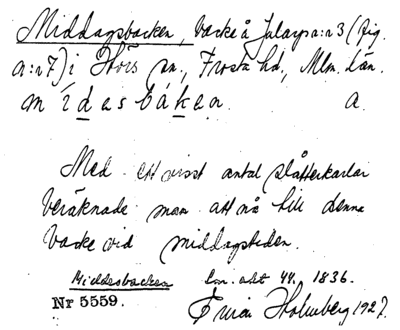 Middagsbacken, backe å Jularp a:n 3 (fig.
a:n 7) i Hörs sn., Frosta hd., Mlm. län.
mídesbáken. a.
Med ett visst antal slåtterkarlar
beräknade man att nå till denna
backe vid middagstiden.
Middesbacken Lm. akt 44. 1836.
Nr 5559. Holmberg 1927.